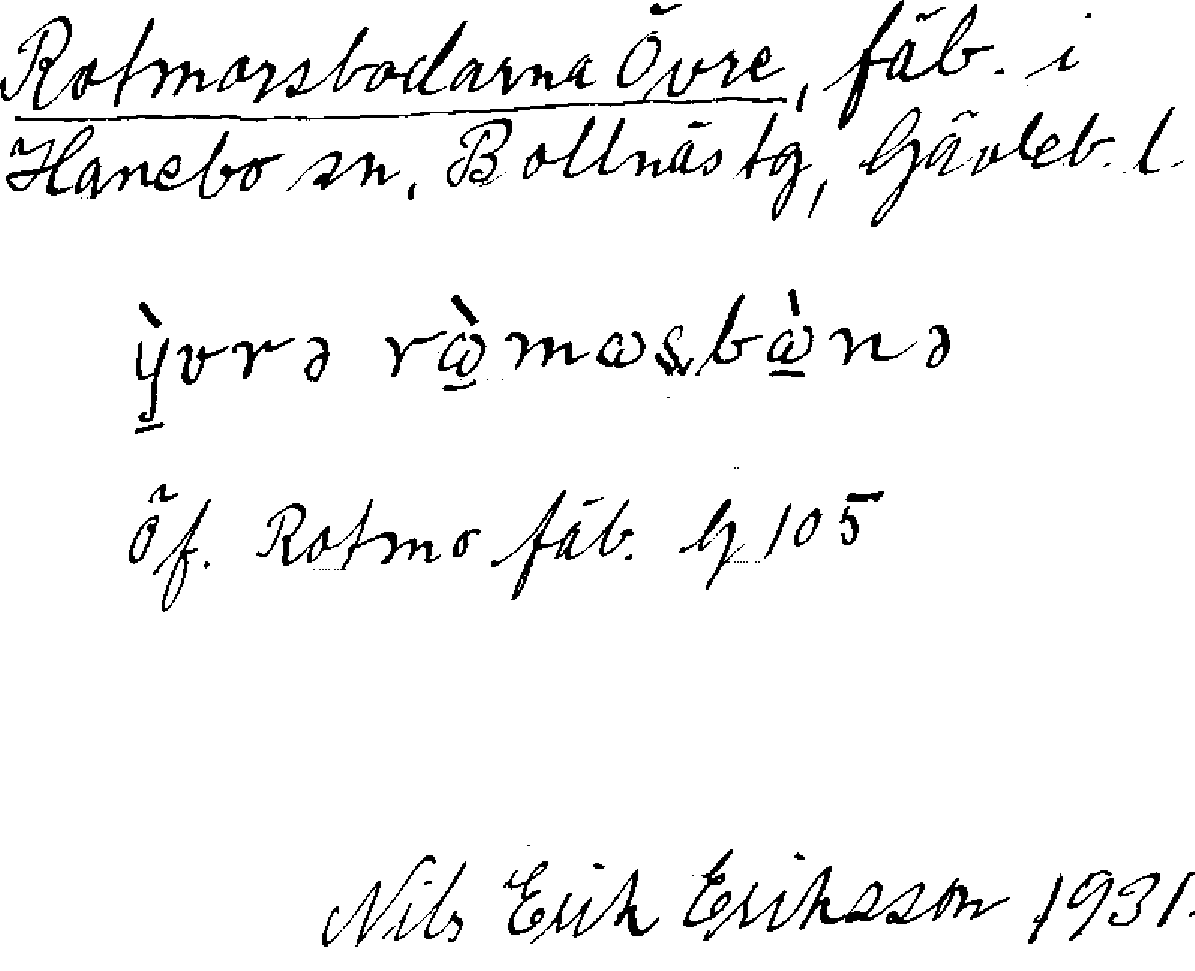 Rotmorsbodarna Övre, fäb. i
Hanebo sn, Bollnäs tg, Gävleb. l.
öf. Rotmo fäb. G 105
Nils Erik Eriksson 1931.